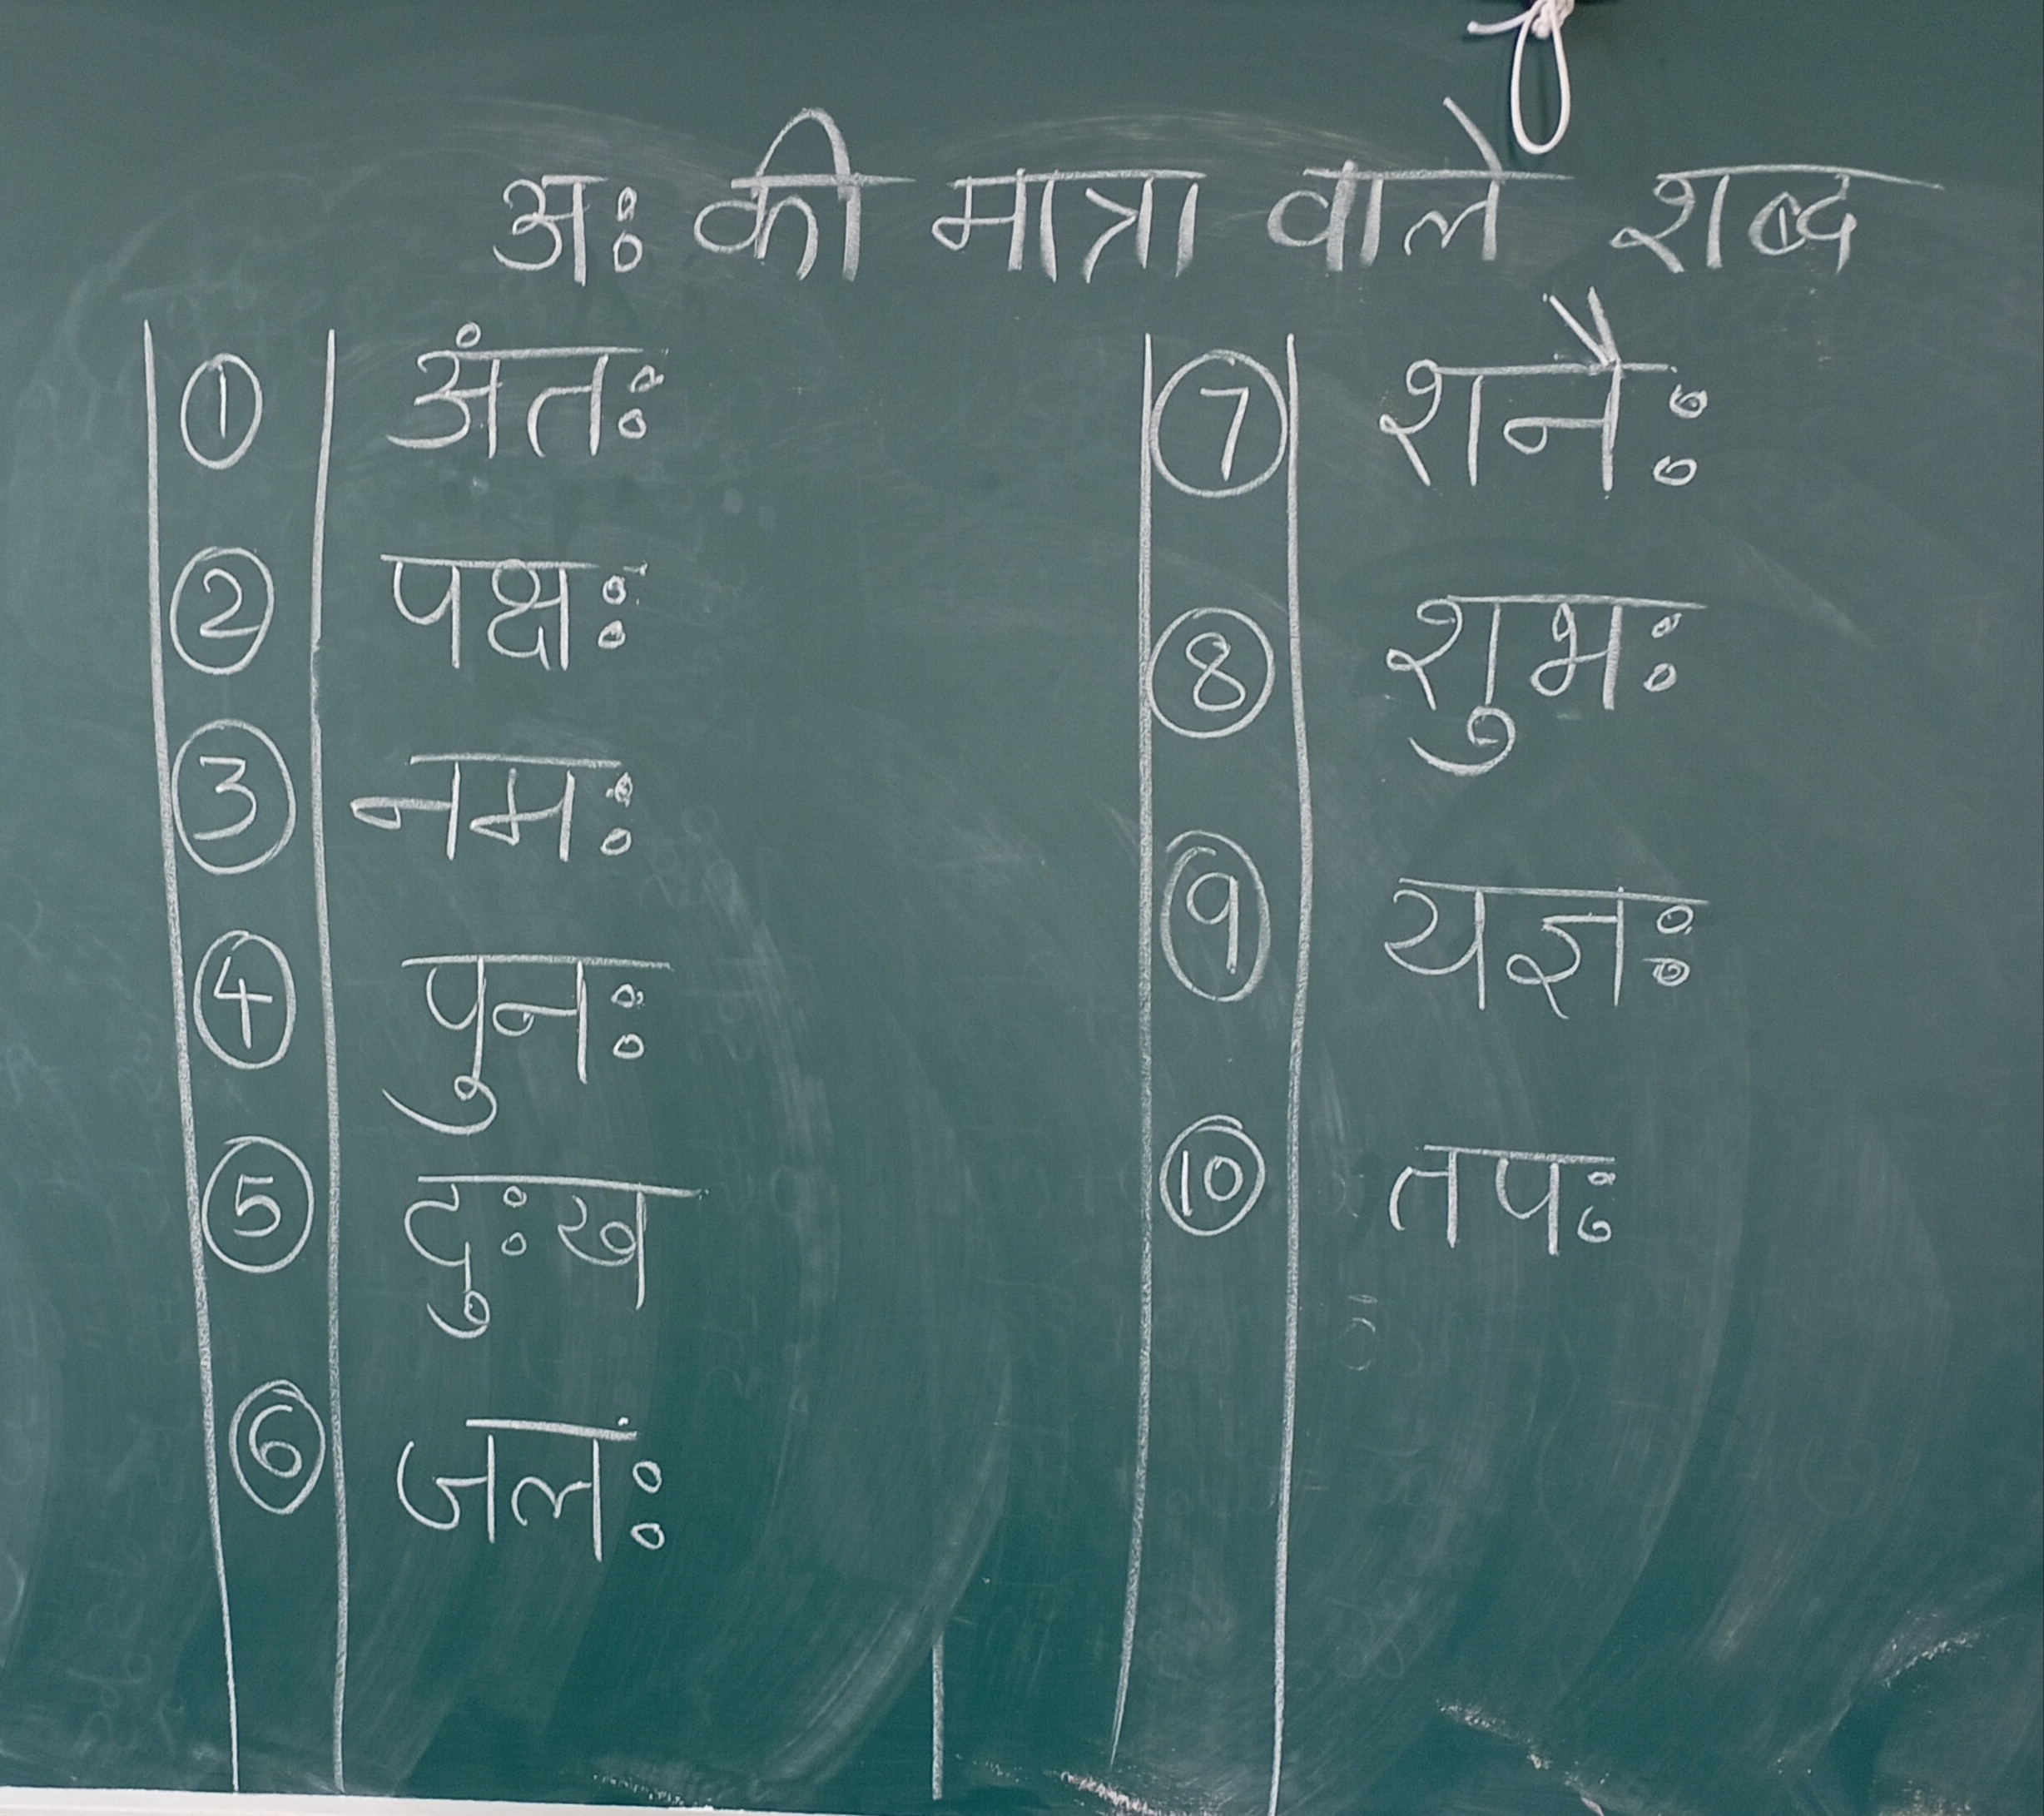 अः की मात्रा वाले शब्द
① अंतः
② पक्षः
③ नमः
④ पुनः
⑤ दुःख
⑥ जलः
⑦ शनैः
⑧ शुभः
⑨ यज्ञः
⑩ तपः